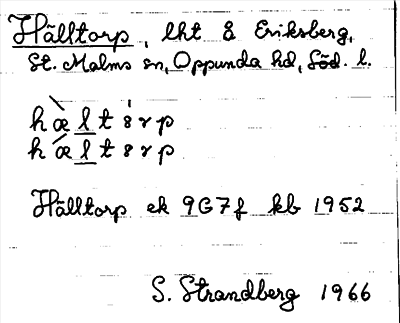 Hälltorp, lht å Eriksberg,
St. Malms sn, Oppunda hd, Söd. l.
hæ̀ltȯrp
hǽltȯrp
Hälltorp ek 9G7f kb 1952
S. Strandberg 1966